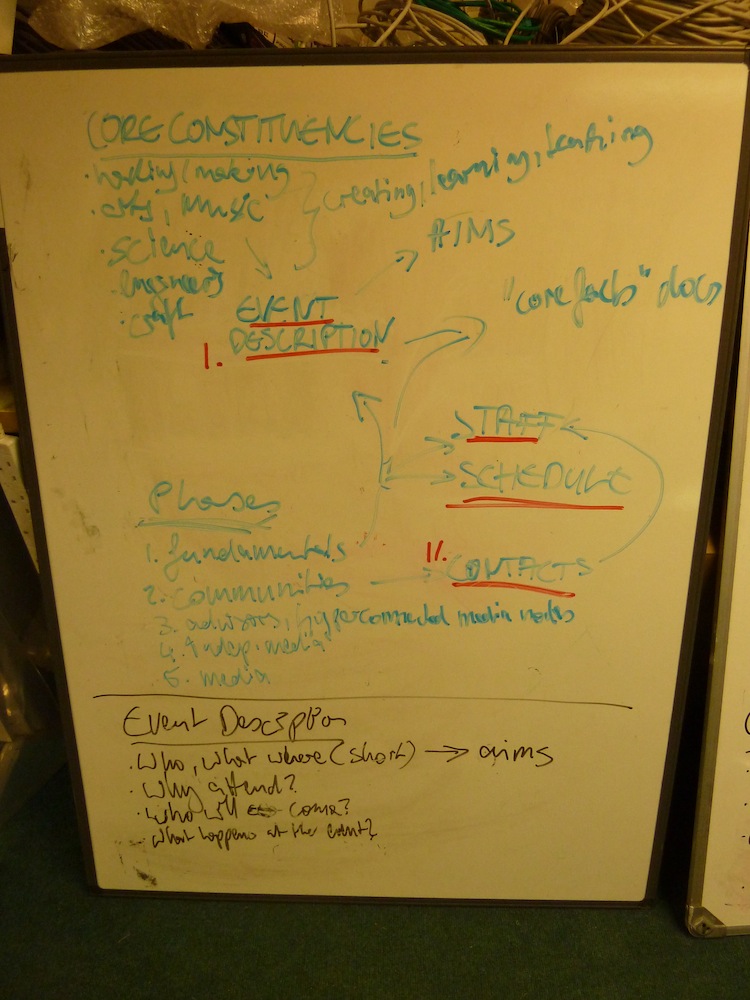 CORE CONSTITUENCIES
· hacking/making
· arts, music
· science
· engineers
· craft
creating, learning, teaching
AIMS
"core facts" docs
1. EVENT
DESCRIPTION
STAFF
SCHEDULE
11. CONTACTS
Phases
1. fundamentals
2. communities
3. advisors, hyperconnected media nodes
4. indep. media
5. media
Event Description
· Who, what where (short) → aims
· Why attend?
· who will come?
· what happens at the event?